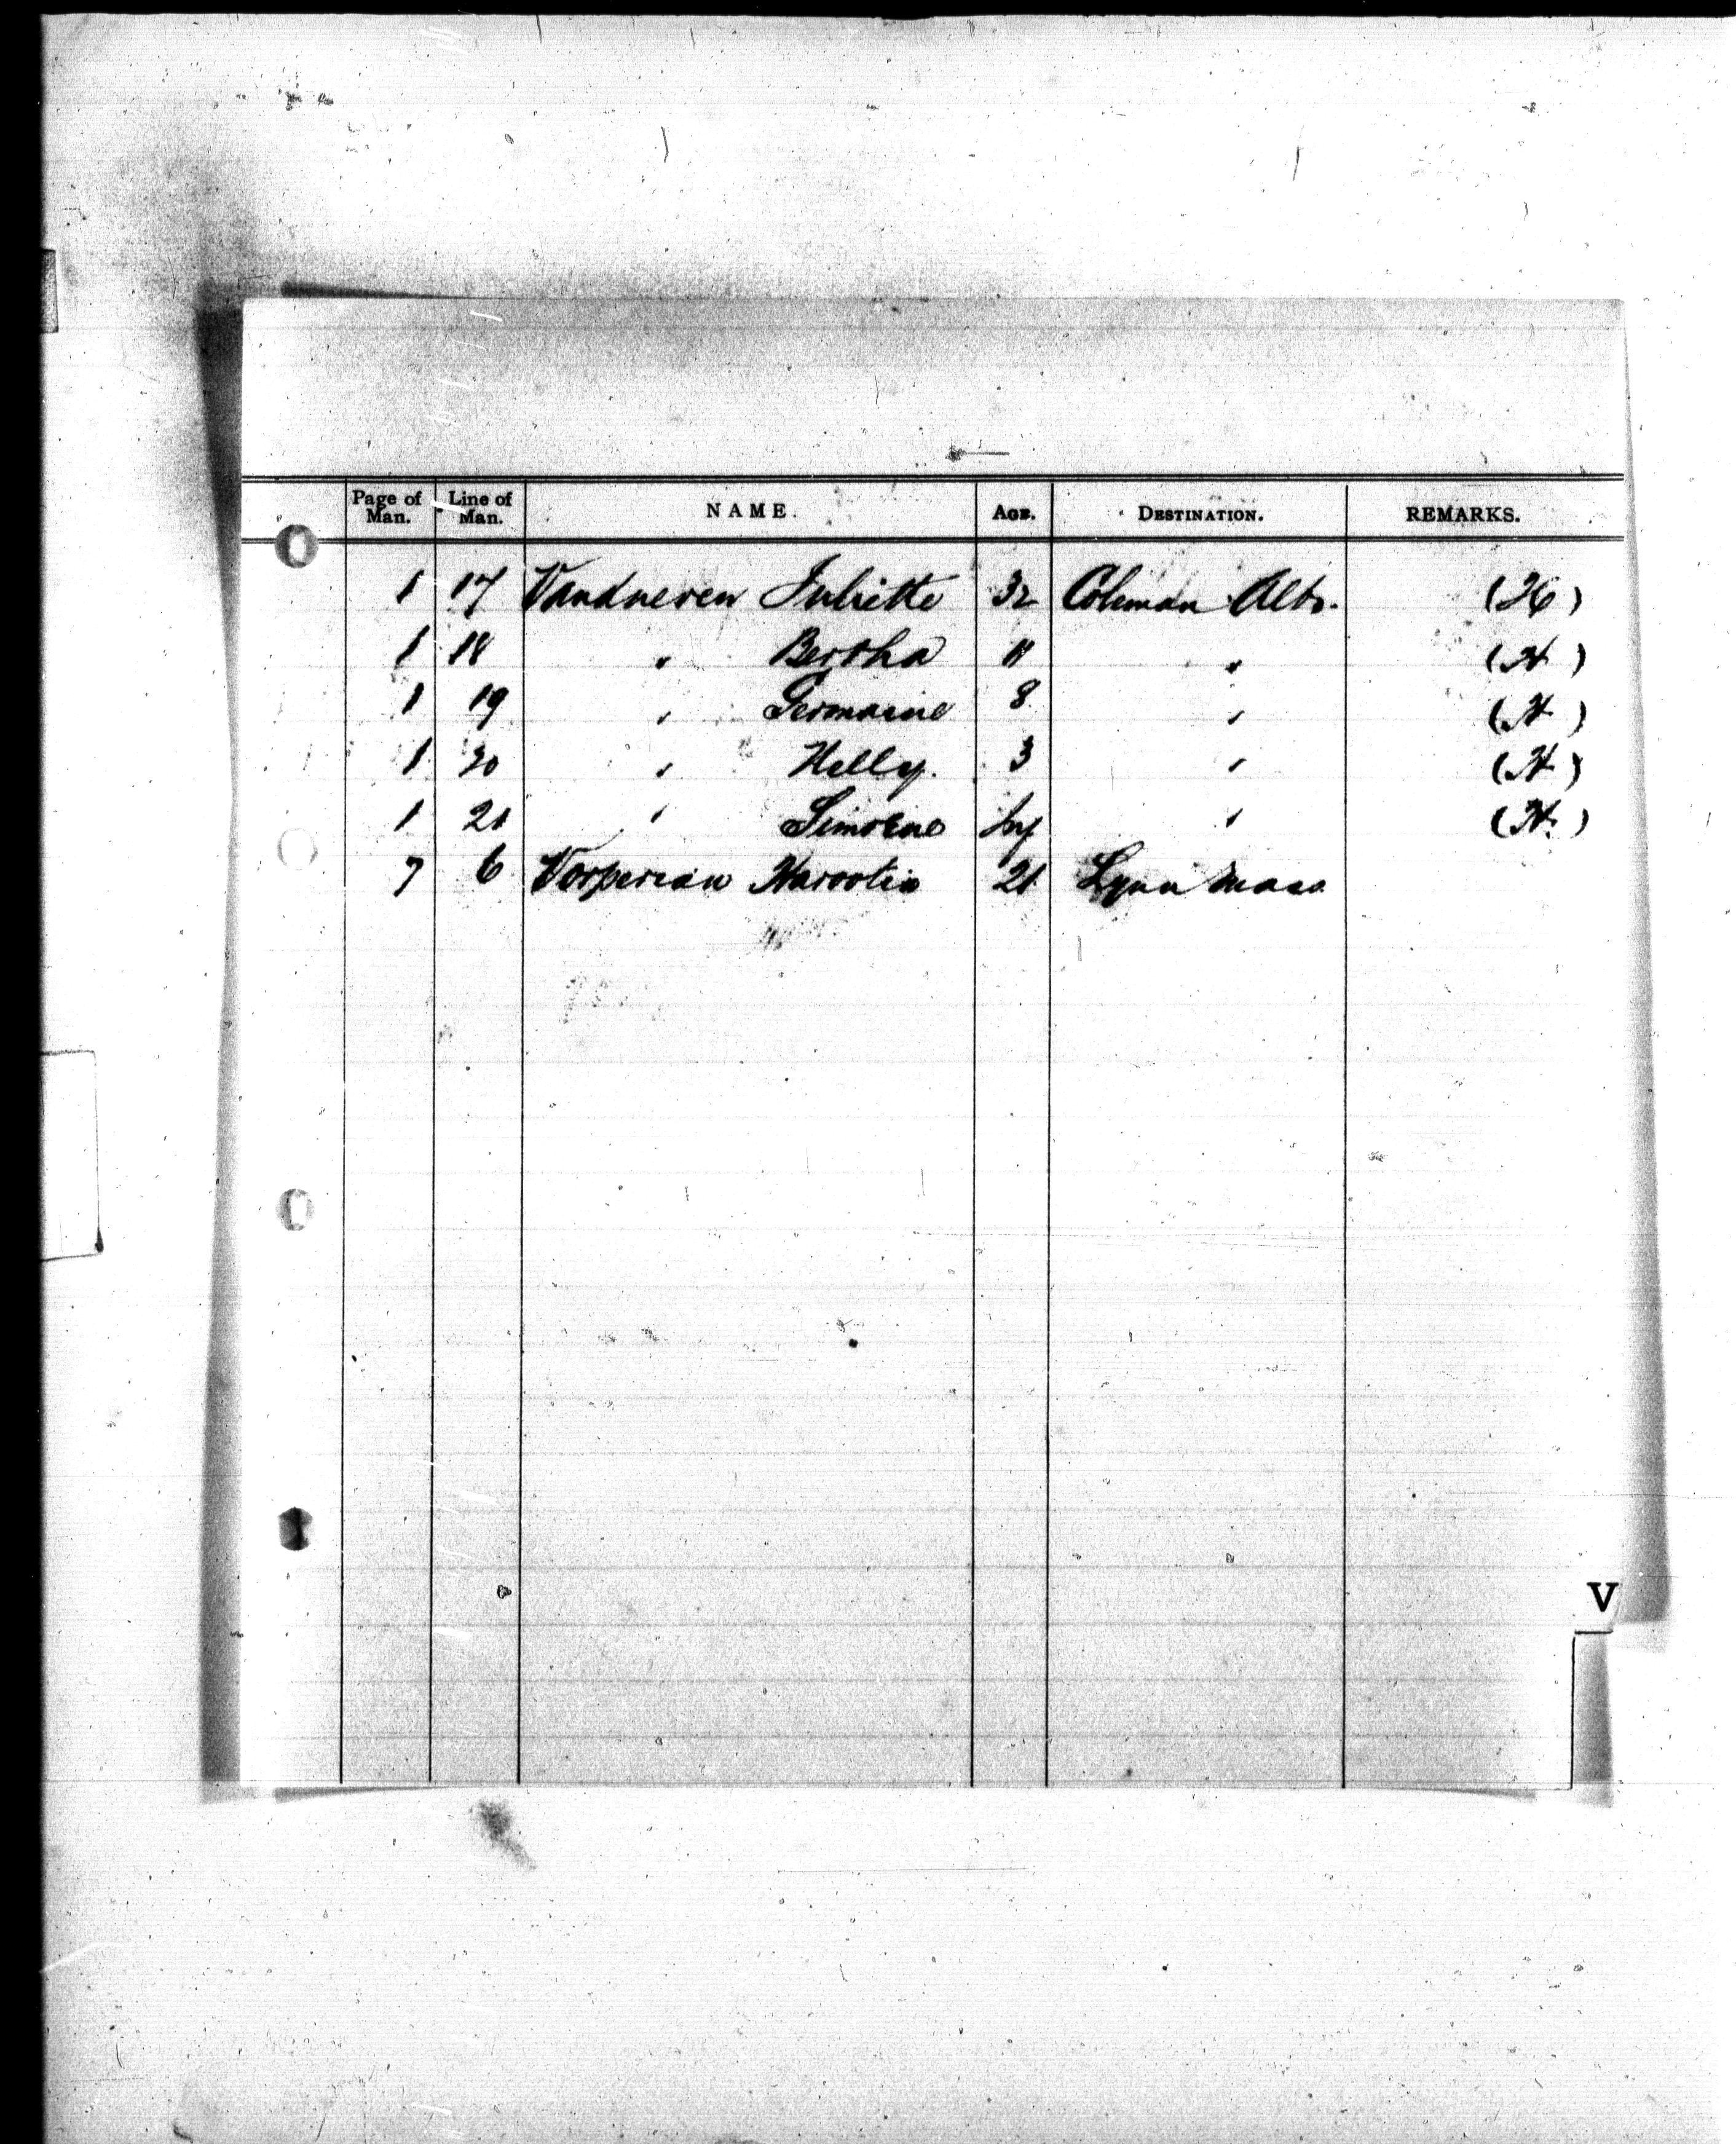 Page of Man. Line of Man. NAME. AGE. DESTINATION. REMARKS.
1 17 Vandneren Juliette 32 Coleman Alta. (H)
1 18 " Bertha 11 " (H)
1 19 " Germaine 8 " (H)
1 20 " Nelly. 3 " (H)
1 21 " Simone Inf " (H)
7 6 Vosperian Harootin 21 Lynn Mass
V